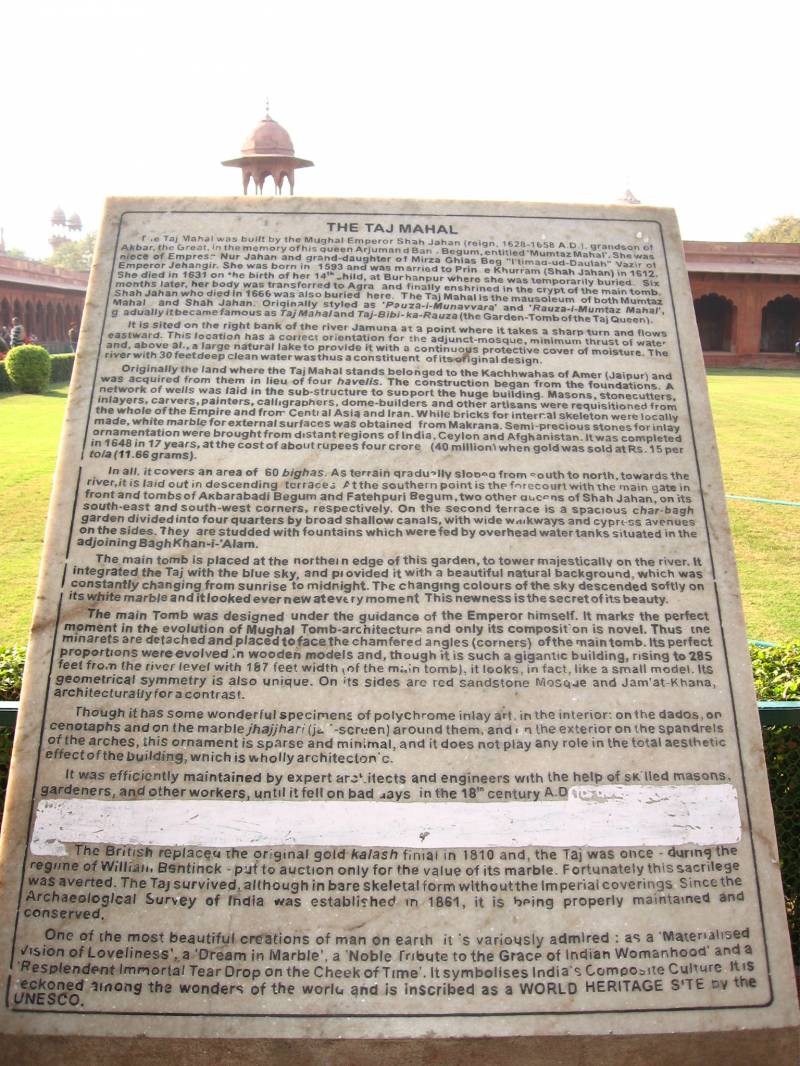 THE TAJ MAHAL
The Taj Mahal was built by the Mughal Emperor Shah Jahan (reign, 1628-1658 A.D.), grandson of
Akbar, the Great, in the memory of his queen Arjumand Bano Begum, entitled 'Mumtaz Mahal'. She was
niece of Empress Nur Jahan and grand-daughter of Mirza Ghias Beg "I'timad-ud-Daulah" Vazir of
Emperor Jehangir. She was born in 1593 and was married to Prince Khurram (Shah Jahan) in 1612.
She died in 1631 on the birth of her 14th child, at Burhanpur where she was temporarily buried. Six
months later, her body was transferred to Agra and finally enshrined in the crypt of the main tomb.
Shah Jahan who died in 1666 was also buried here. The Taj Mahal is the mausoleum of both Mumtaz
Mahal and Shah Jahan. Originally styled as 'Rauza-i-Munavvara' and 'Rauza-i-Mumtaz Mahal',
gradually it became famous as Taj Mahal and Taj-Bibi-ka-Rauza (the Garden-Tomb of the Taj Queen).
It is sited on the right bank of the river Jamuna at a point where it takes a sharp turn and flows
eastward. This location has a correct orientation for the adjunct-mosque, minimum thrust of water
and, above all, a large natural lake to provide it with a continuous protective cover of moisture. The
river with 30 feet deep clean water was thus a constituent of its original design.
Originally the land where the Taj Mahal stands belonged to the Kachhwahas of Amer (Jaipur) and
was acquired from them in lieu of four havelis. The construction began from the foundations. A
network of wells was laid in the sub-structure to support the huge building. Masons, stonecutters,
inlayers, carvers, painters, calligraphers, dome-builders and other artisans were requisitioned from
the whole of the Empire and from Central Asia and Iran. While bricks for internal skeleton were locally
made, white marble for external surfaces was obtained from Makrana. Semi-precious stones for inlay
ornamentation were brought from distant regions of India, Ceylon and Afghanistan. It was completed
in 1648 in 17 years, at the cost of about rupees four crore (40 million) when gold was sold at Rs. 15 per
tola (11.66 grams).
In all, it covers an area of 60 bighas. As terrain gradually sloped from south to north, towards the
river, it is laid out in descending terraces. At the southern point is the forecourt with the main gate in
front and tombs of Akbarabadi Begum and Fatehpuri Begum, two other queens of Shah Jahan, on its
south-east and south-west corners, respectively. On the second terrace is a spacious char-bagh
garden divided into four quarters by broad shallow canals, with wide walkways and cypress avenues
on the sides. They are studded with fountains which were fed by overhead water tanks situated in the
adjoining Bagh Khan-i-'Alam.
The main tomb is placed at the northern edge of this garden, to tower majestically on the river. It
integrated the Taj with the blue sky, and provided it with a beautiful natural background, which was
constantly changing from sunrise to midnight. The changing colours of the sky descended softly on
its white marble and it looked ever new at every moment This newness is the secret of its beauty.
The main Tomb was designed under the guidance of the Emperor himself. It marks the perfect
moment in the evolution of Mughal Tomb-architecture and only its composition is novel. Thus the
minarets are detached and placed to face the chamfered angles (corners) of the main tomb. Its perfect
proportions were evolved in wooden models and, though it is such a gigantic building, rising to 285
feet from the river level with 187 feet width (of the main tomb), it looks, in fact, like a small model. Its
geometrical symmetry is also unique. On its sides are red sandstone Mosque and Jam'at-Khana,
architecturally for a contrast.
Though it has some wonderful specimens of polychrome inlay art, in the interior: on the dados, on
cenotaphs and on the marble jhajjhari (jali-screen) around them, and on the exterior on the spandrels
of the arches, this ornament is sparse and minimal, and it does not play any role in the total aesthetic
effect of the building, which is wholly architectonic.
It was efficiently maintained by expert architects and engineers with the help of skilled masons,
gardeners, and other workers, until it fell on bad days in the 18th century A.D
The British replaced the original gold kalash finial in 1810 and, the Taj was once - during the
regime of William Bentinck - put to auction only for the value of its marble. Fortunately this sacrilege
was averted. The Taj survived, although in bare skeletal form without the Imperial coverings. Since the
Archaeological Survey of India was established in 1861, it is being properly maintained and
conserved.
One of the most beautiful creations of man on earth it is variously admired : as a 'Materialised
Vision of Loveliness', a 'Dream in Marble', a 'Noble Tribute to the Grace of Indian Womanhood' and a
'Resplendent Immortal Tear Drop on the Cheek of Time'. It symbolises India's Composite Culture. It is
reckoned among the wonders of the world and is inscribed as a WORLD HERITAGE SITE by the
UNESCO.